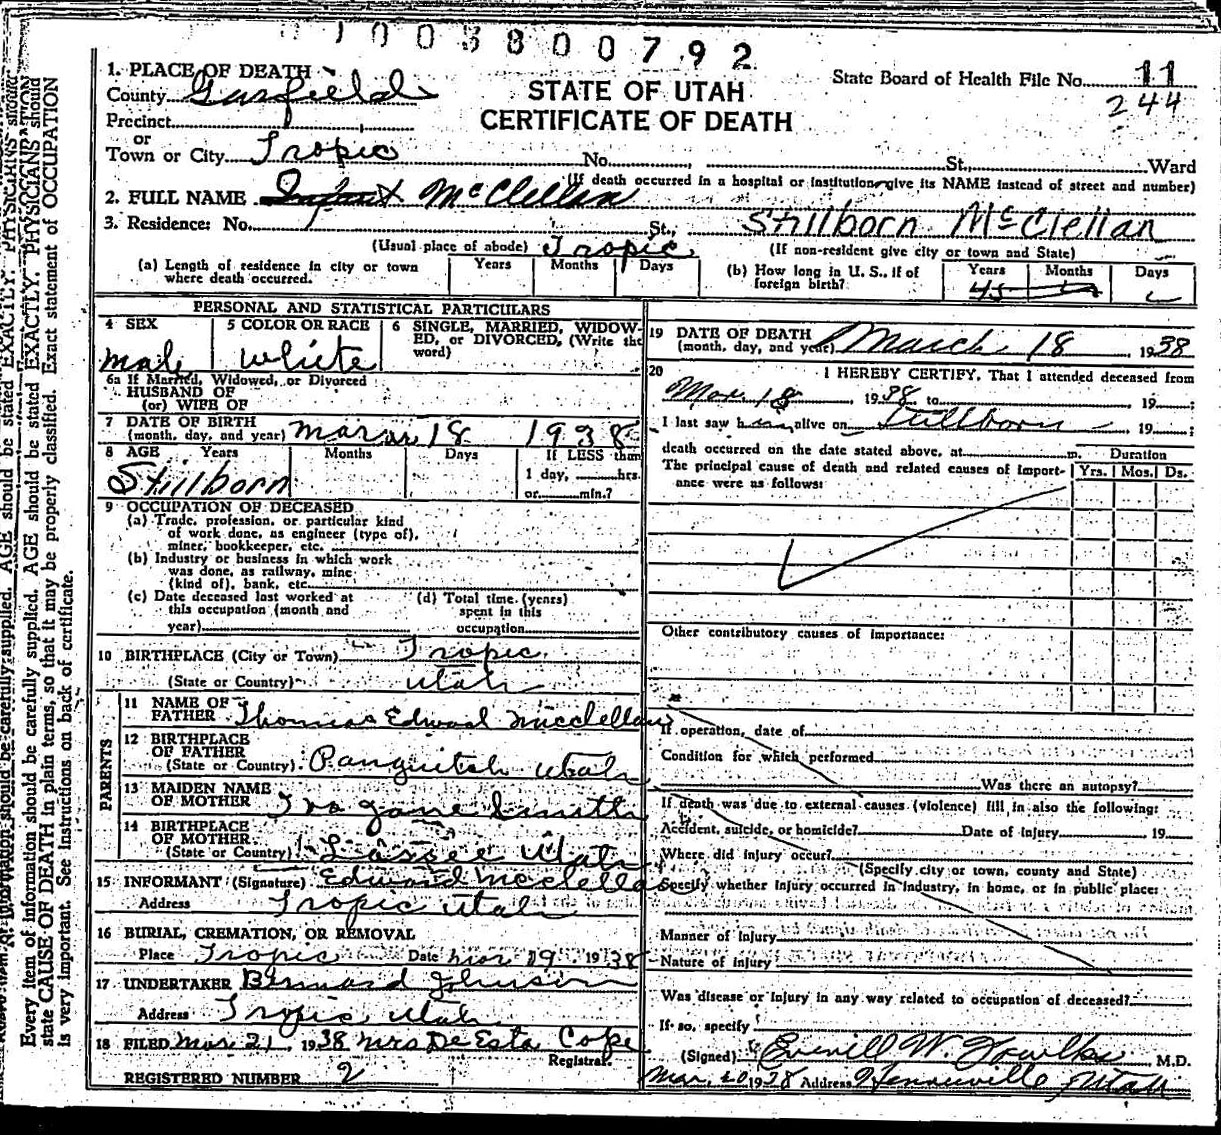 1003800792
1. PLACE OF DEATH
STATE OF UTAH
CERTIFICATE OF DEATH
State Board of Health File No. 11
244
County Garfield
Precinct
or
Town or City Tropic No. St. Ward
(If death occurred in a hospital or institution, give its NAME instead of street and number)
2. FULL NAME Infant McClellan
Stillborn McClellan
3. Residence: No. St.,
(Usual place of abode) Tropic (If non-resident give city or town and State)
(a) Length of residence in city or town where death occurred. Years Months Days
(b) How long in U. S., if of foreign birth? Years Months Days
PERSONAL AND STATISTICAL PARTICULARS
4 SEX male
5 COLOR OR RACE White
6 SINGLE, MARRIED, WIDOWED, or DIVORCED, (Write the word)
6a If Married, Widowed, or Divorced
HUSBAND OF
(or) WIFE OF
7 DATE OF BIRTH
(month, day, and year) mar 18 1938
8 AGE Years Months Days If LESS than
Stillborn 1 day, hrs.
or min.?
9 OCCUPATION OF DECEASED
(a) Trade, profession, or particular kind
of work done, as engineer (type of),
miner, bookkeeper, etc.
(b) Industry or business in which work
was done, as railway, mine
(kind of), bank, etc.
(c) Date deceased last worked at
this occupation (month and
year)
(d) Total time (years)
spent in this
occupation
10 BIRTHPLACE (City or Town) Tropic
(State or Country) Utah
PARENTS
11 NAME OF
FATHER Thomas Edward McClellan
12 BIRTHPLACE
OF FATHER
(State or Country) Panguitch Utah
13 MAIDEN NAME
OF MOTHER Iva Jane Smith
14 BIRTHPLACE
OF MOTHER
(State or Country) Utah
15 INFORMANT (Signature) Edward McClellan
Address Tropic Utah
16 BURIAL, CREMATION, OR REMOVAL
Place Tropic Date Mar 19 1938
17 UNDERTAKER Johnson
Address Tropic Utah
18 FILED Mar 21 1938 Mrs De Esta Cope
Registrar.
REGISTERED NUMBER 2
19 DATE OF DEATH
(month, day, and year) March 18, 1938
20 I HEREBY CERTIFY, That I attended deceased from
Mar 18, 1938 to 19 ;
I last saw h alive on Stillborn 19 ;
death occurred on the date stated above, at m. Duration
The principal cause of death and related causes of importance were as follows: Yrs. Mos. Ds.
Other contributory causes of importance:
If operation, date of
Condition for which performed
Was there an autopsy?
If death was due to external causes (violence) fill in also the following:
Accident, suicide, or homicide? Date of injury 19
Where did injury occur?
(Specify city or town, county and State)
Specify whether injury occurred in industry, in home, or in public place:
Manner of injury
Nature of injury
Was disease or injury in any way related to occupation of deceased?
If so, specify
(Signed) W. M.D.
Mar. 20 1938 Address Henrieville Utah
Every item of information should be carefully supplied. AGE should be stated EXACTLY. PHYSICIANS should
state CAUSE OF DEATH in plain terms, so that it may be properly classified. Exact statement of OCCUPATION
is very important. See instructions on back of certificate.